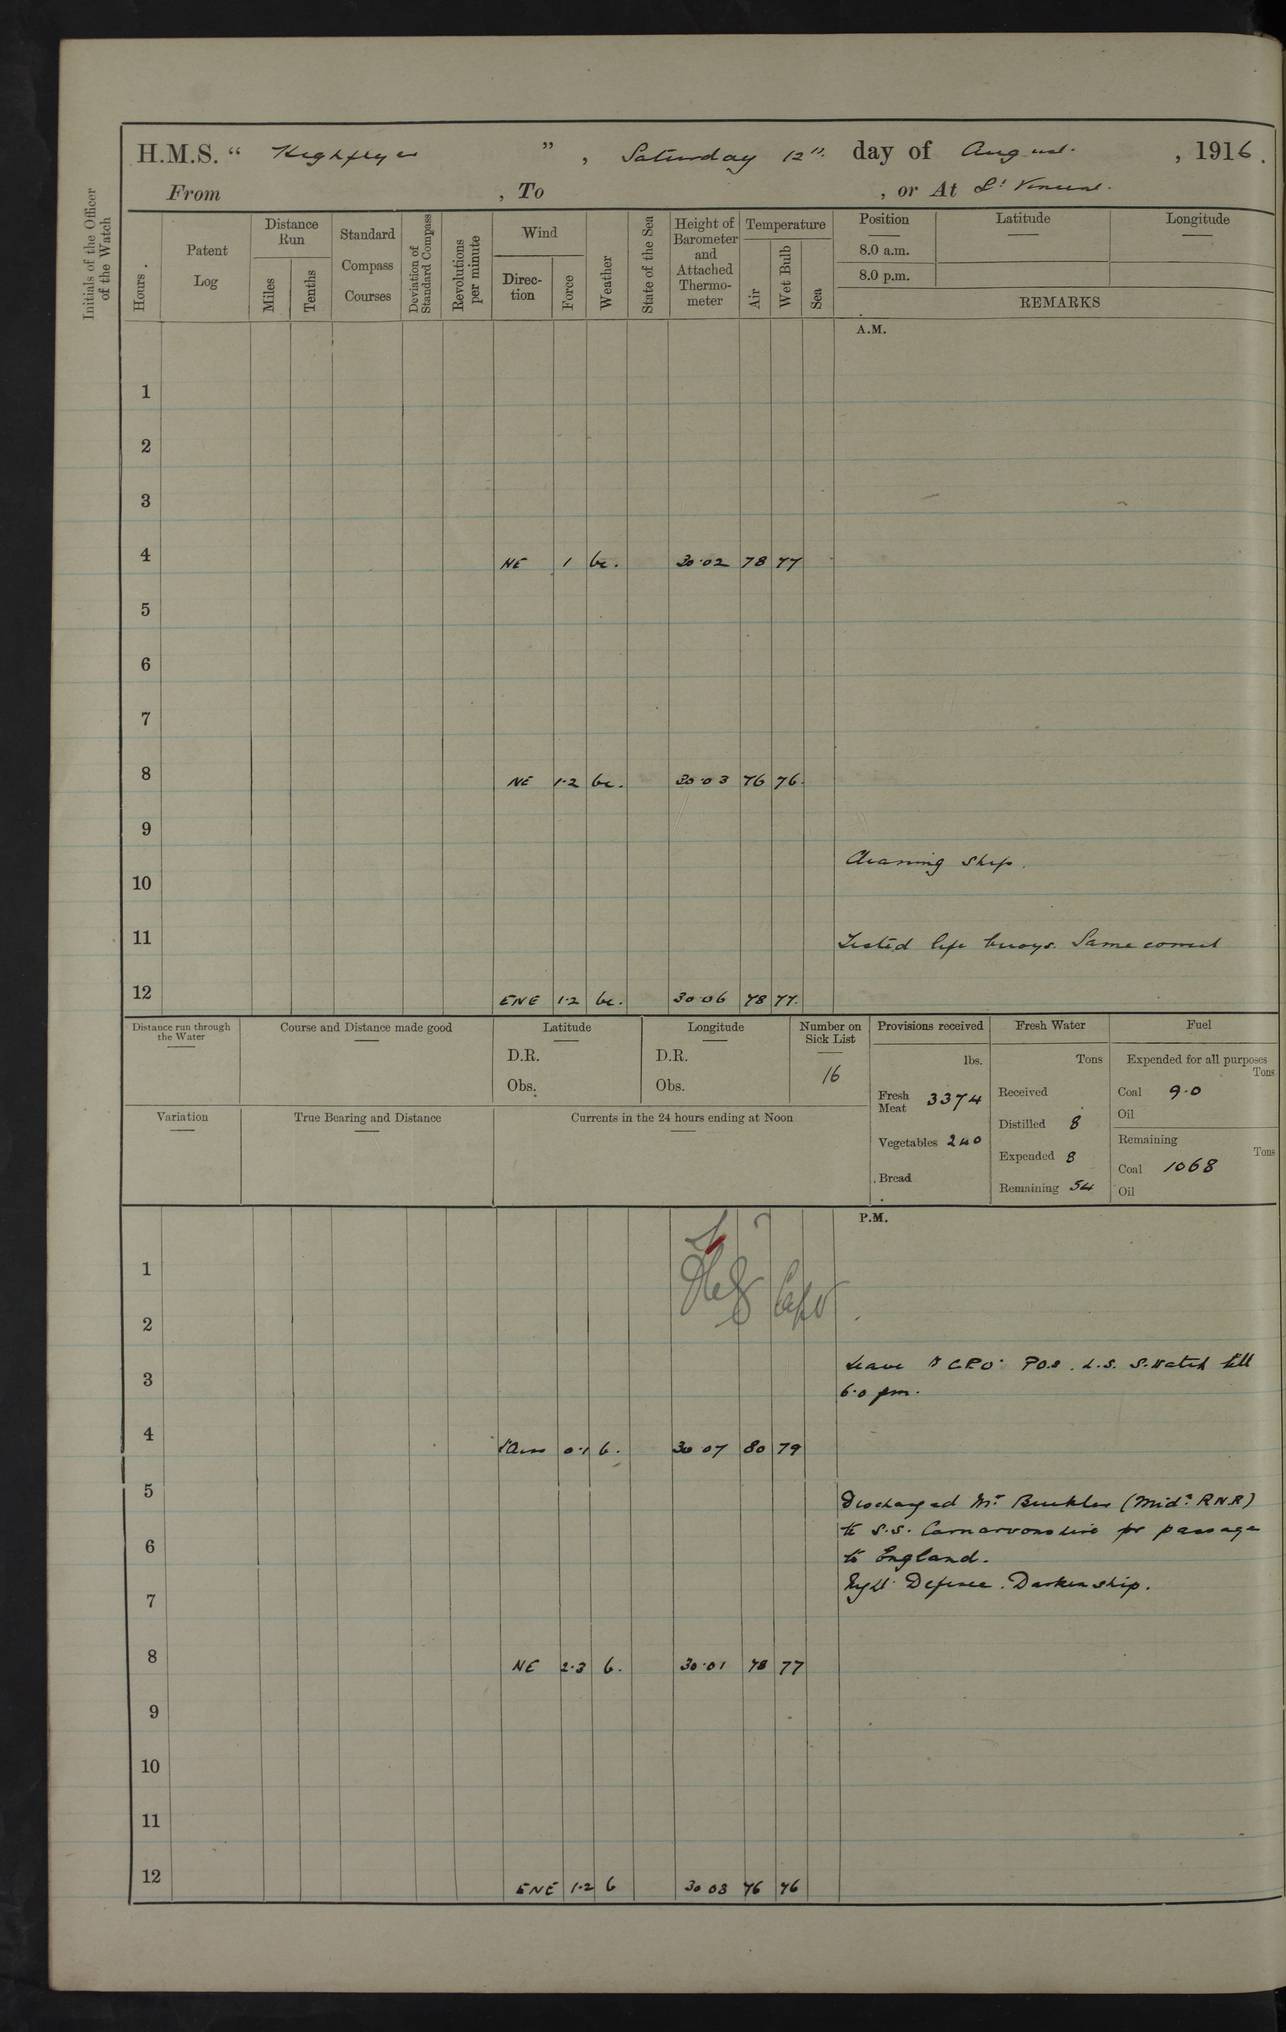 H.M.S. “ Highflyer ” , Saturday 12th day of August , 1916.
From , To , or At St Vincent.
Initials of the Officer of the Watch
Hours.
Patent Log
Distance Run
Miles
Tenths
Standard Compass Courses
Deviation of Standard Compass
Revolutions per minute
Wind
Direction
Force
Weather
State of the Sea
Height of Barometer and Attached Thermometer
Temperature
Air
Wet Bulb
Sea
Position Latitude Longitude
8.0 a.m.
8.0 p.m.
REMARKS
A.M.
1
2
3
4 NE 1 bc. 30.02 78 77
5
6
7
8 NE 1.2 bc. 30.03 76 76.
9
Cleaning ship.
10
11 Tested life buoys. Same correct
12 ENE 1.2 bc. 30.06 78 77.
Distance run through the Water
Course and Distance made good
Latitude
D.R.
Obs.
Longitude
D.R.
Obs.
Number on Sick List
16
Provisions received
lbs.
Fresh Meat 3374
Vegetables 240
Bread
Fresh Water
Tons
Received
Distilled 8
Expended 8
Remaining 54
Fuel
Expended for all purposes
Tons
Coal 9.0
Oil
Remaining
Tons
Coal 1068
Oil
Variation
True Bearing and Distance
Currents in the 24 hours ending at Noon
P.M.
1
2
3 Leave to C.P.O. P.Os. L.S. S. Watch till
6.0 pm.
4 0.1 b. 30 07 80 79
5
Discharged Mr. (Mid. R.N.R)
6 to S.S. Carnarvonshire for passage
to England.
7 Night Defence. Darken ship.
8 NE 2.3 b. 30.01 78 77
9
10
11
12 ENE 1.2 b 30 03 76 76